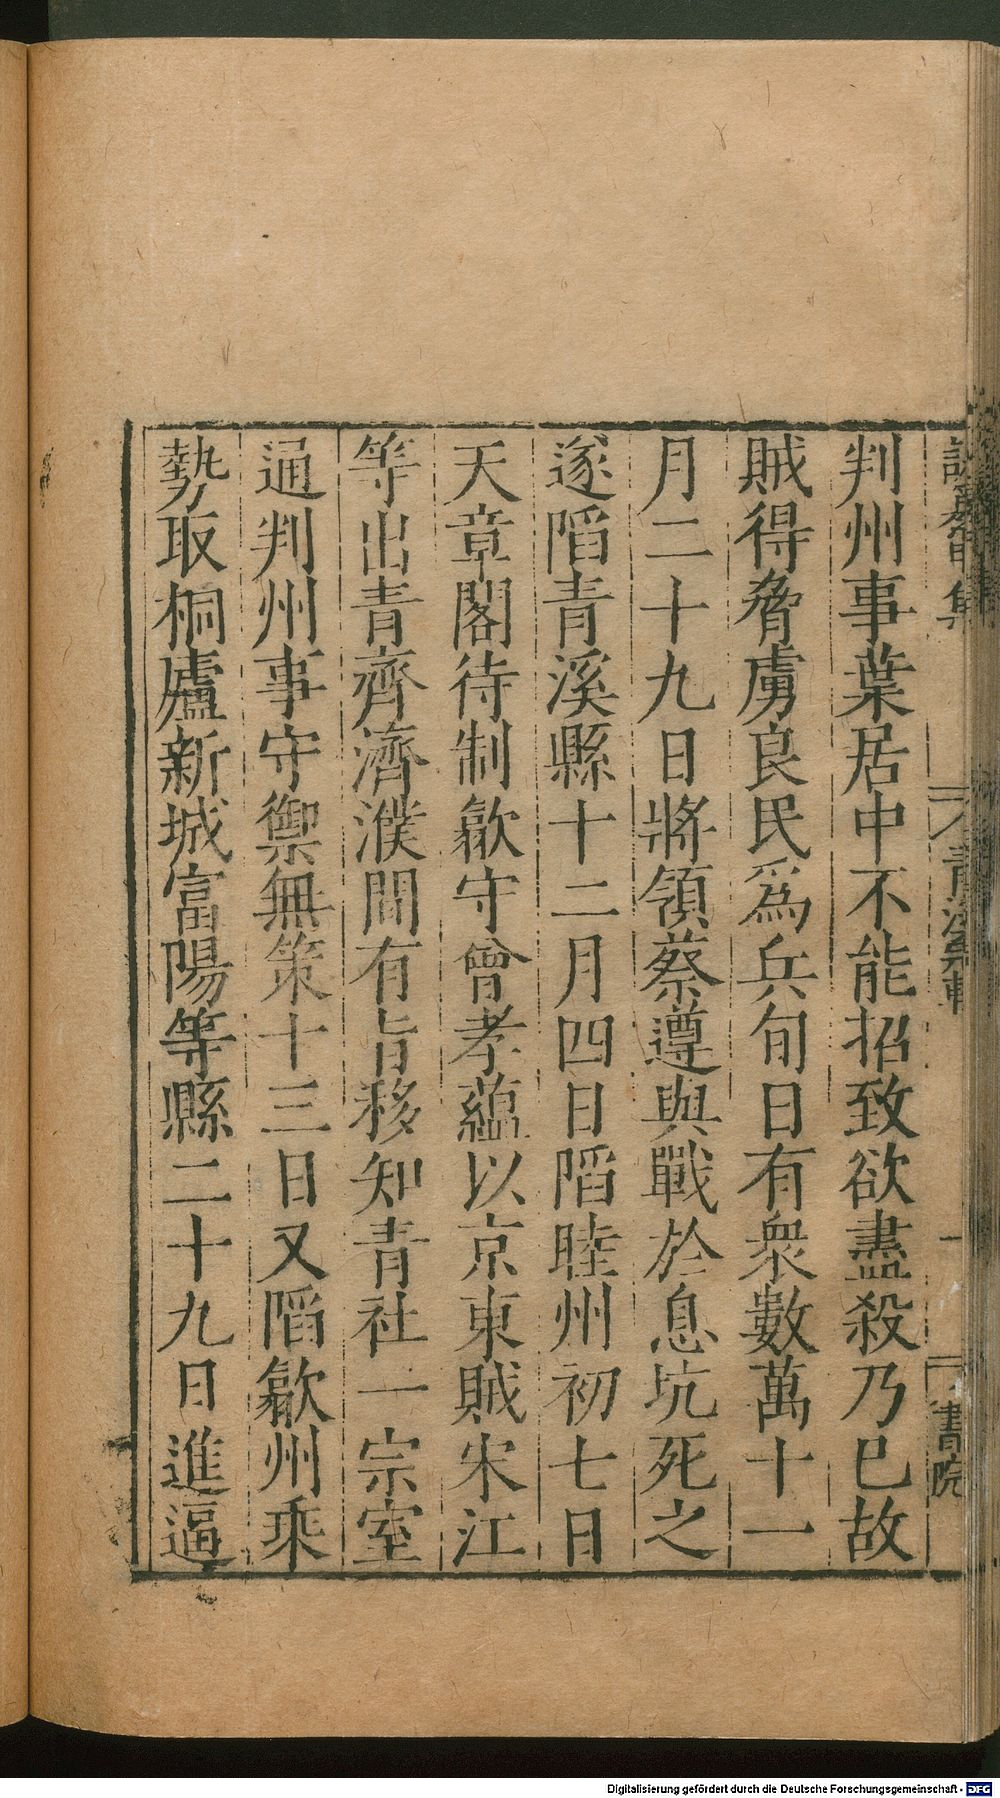 判州事葉居中不能招致欲盡殺乃巳故
賊得脅虜良民爲兵旬日有衆數萬十一
月二十九日將領蔡遵與戰於息坑死之
遂陷青溪縣十二月四日陷睦州初七日
天章閣待制歙守曾孝蘊以京東賊宋江
等出青齊濟濮間有旨移知青社一宗室
通判州事守禦無策十三日又陷歙州乘
勢取桐廬新城富陽等縣二十九日進逼
書院
Digitalisierung gefördert durch die Deutsche Forschungsgemeinschaft - DFG